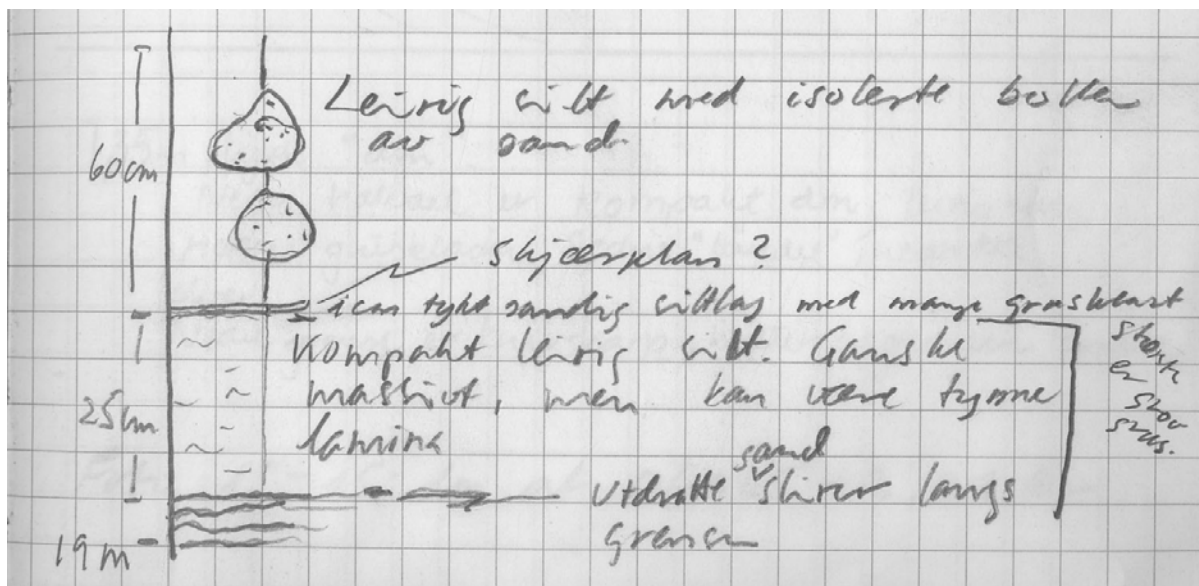 Leirig silt med isolerte boller
av sand
60cm
skjærplan?
1cm tykt sandig siltlag med mange gruskorn
Kompakt leirig silt. Ganske
massivt, men kan være tynne
lamina
25cm
største
er
grus.
Utdratte sand slirer langs
grensen
19m